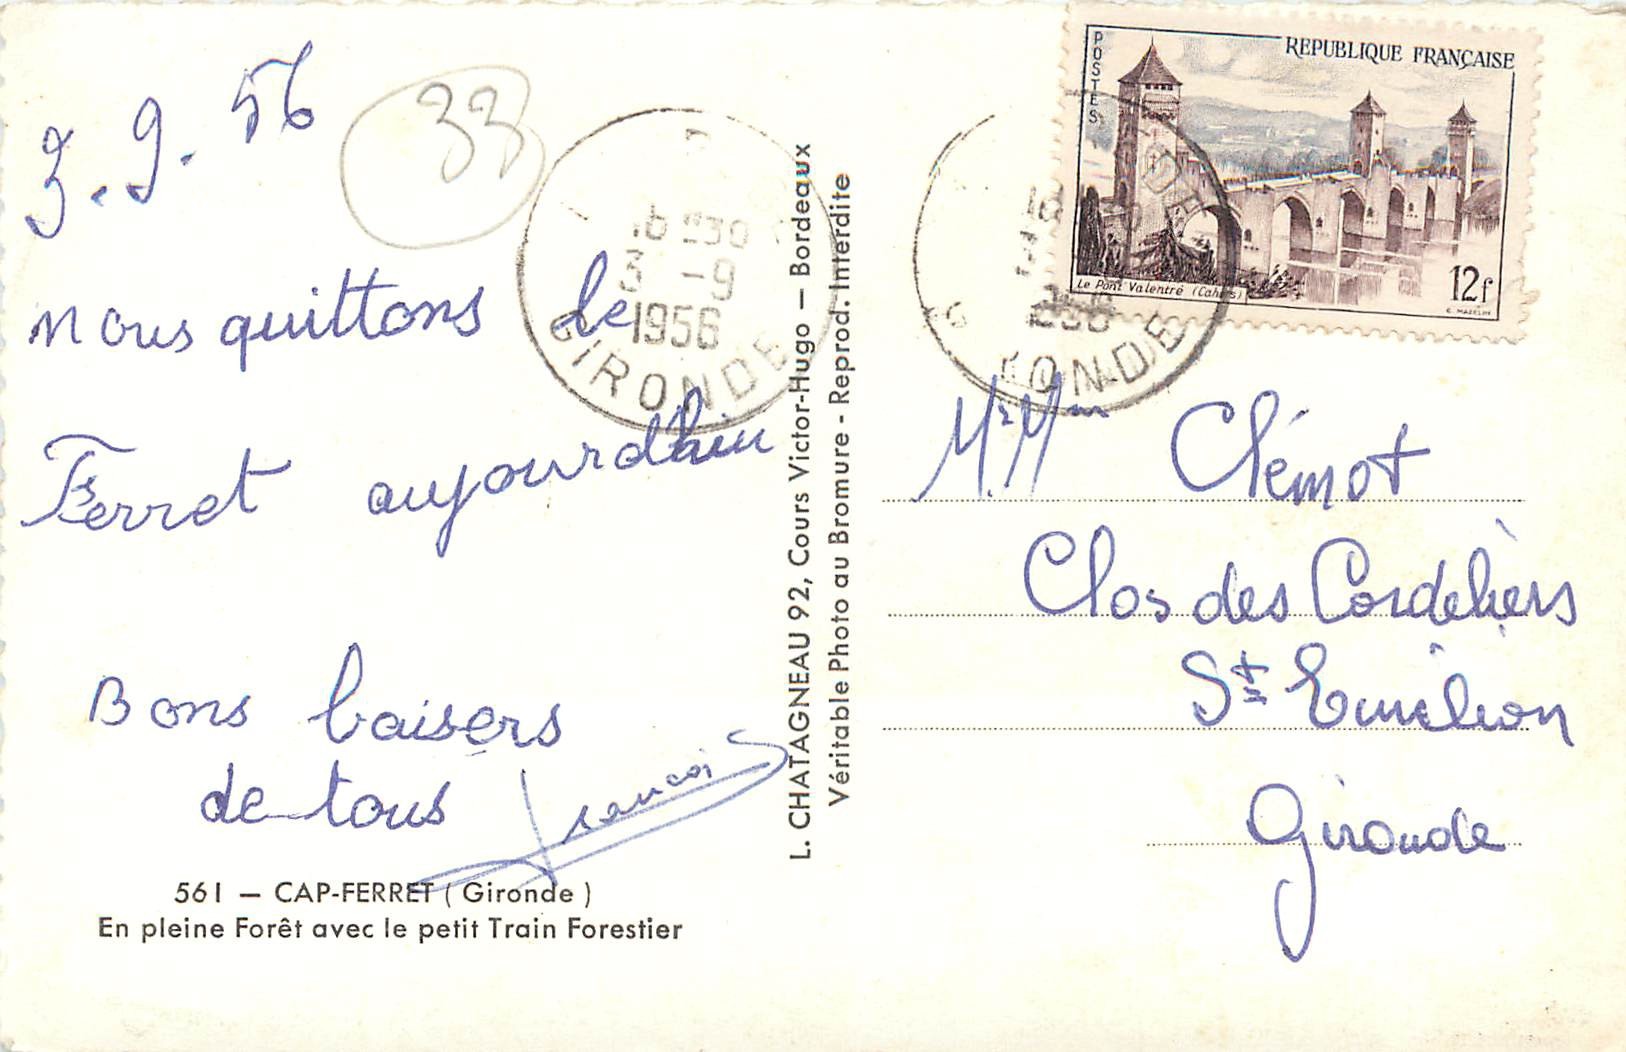 3.9.56
33
Nous quittons le
Ferret aujourd'hui
Bons baisers
de tous
François
561 — CAP-FERRET ( Gironde )
En pleine Forêt avec le petit Train Forestier
L. CHATAGNEAU 92, Cours Victor-Hugo — Bordeaux
Véritable Photo au Bromure - Reprod. Interdite
16 H30
3 -9
1956
GIRONDE
POSTES
REPUBLIQUE FRANÇAISE
Le Pont Valentré (Cahors)
12f
E. MAZELIN
RONDE
Mr Mme Clémot
Clos des Cordeliers
St Emilion
Gironde